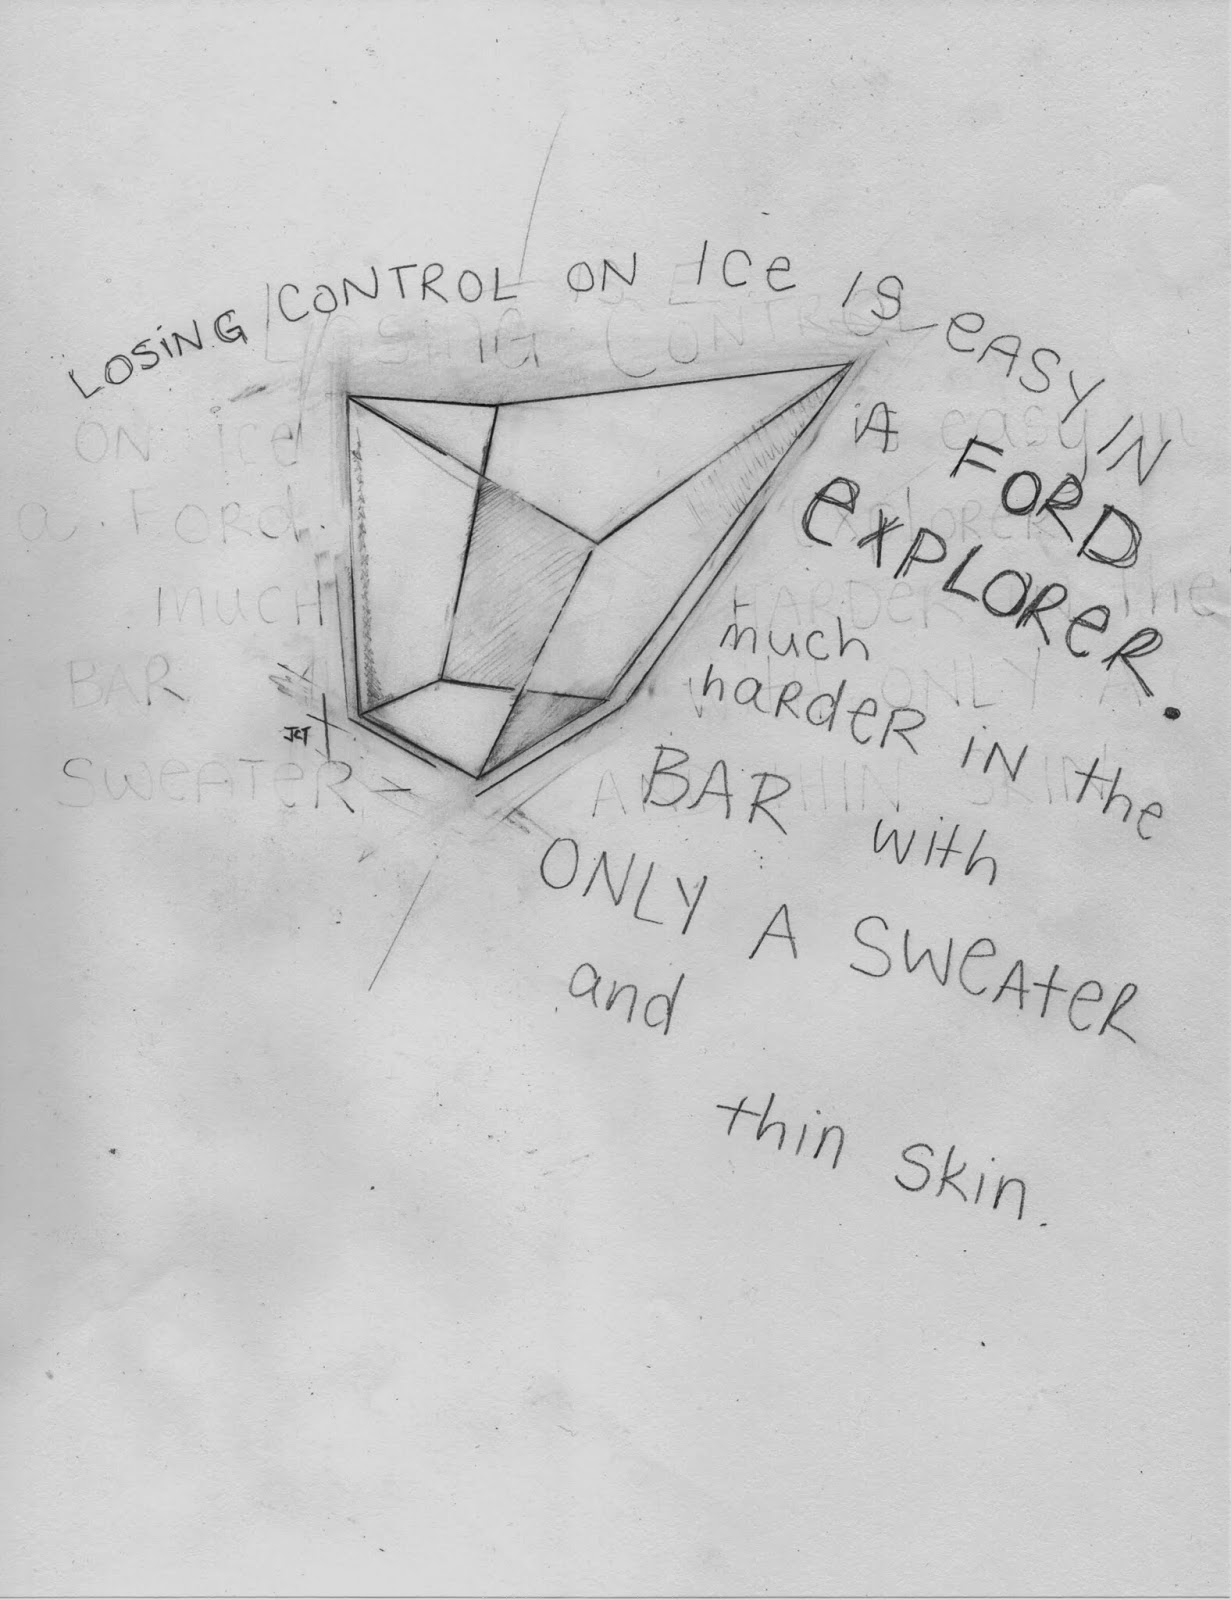 LOSING CONTROL ON Ice IS eASY IN
A FORD
exPLOReR.
much
harder IN the
BAR with
ONLY A SweAteR
and
thin Skin.
LOSING CONTROL
ON Ice easy in
a FORD exPLOReR
much HARDeR The
BAR ONLY A
SweATeR THIN SKIN
JCT